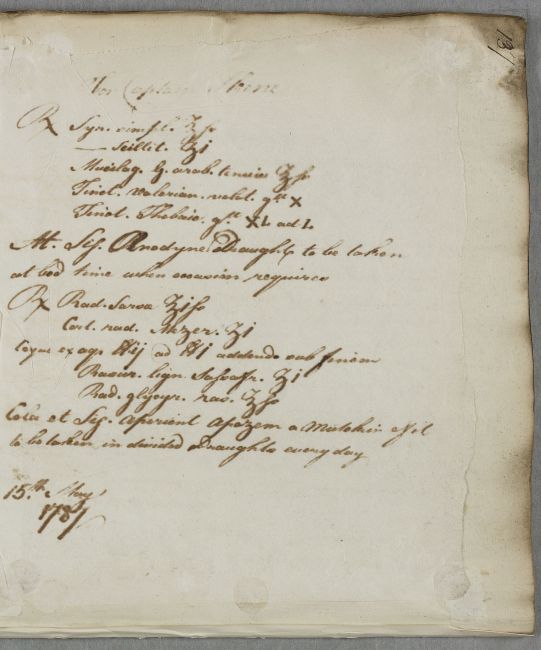 131
For Captain
℞ Syr. simpl. ʒſs
— Scillit. ʒi
Mucilag. G. arab. tenuis ʒſs
Tinct. Valerian. volat. gtt X
Tinct. Thebaic. gtt XL ad L
M. Sig. Anodyne Draught, to be taken
at bed time when occasion requires
℞ Rad. Sarsa ʒiſs
Cort. rad. Mezer. ʒi
Coque ex aq. ad addendo sub finem
Rasur. lign. Sassafr. ʒi
Rad. glycyr. ʒſs
Cola et Sig. Aperient Apozem a Mutchkin of it
to be taken in divided Draughts every day
15th May
1787